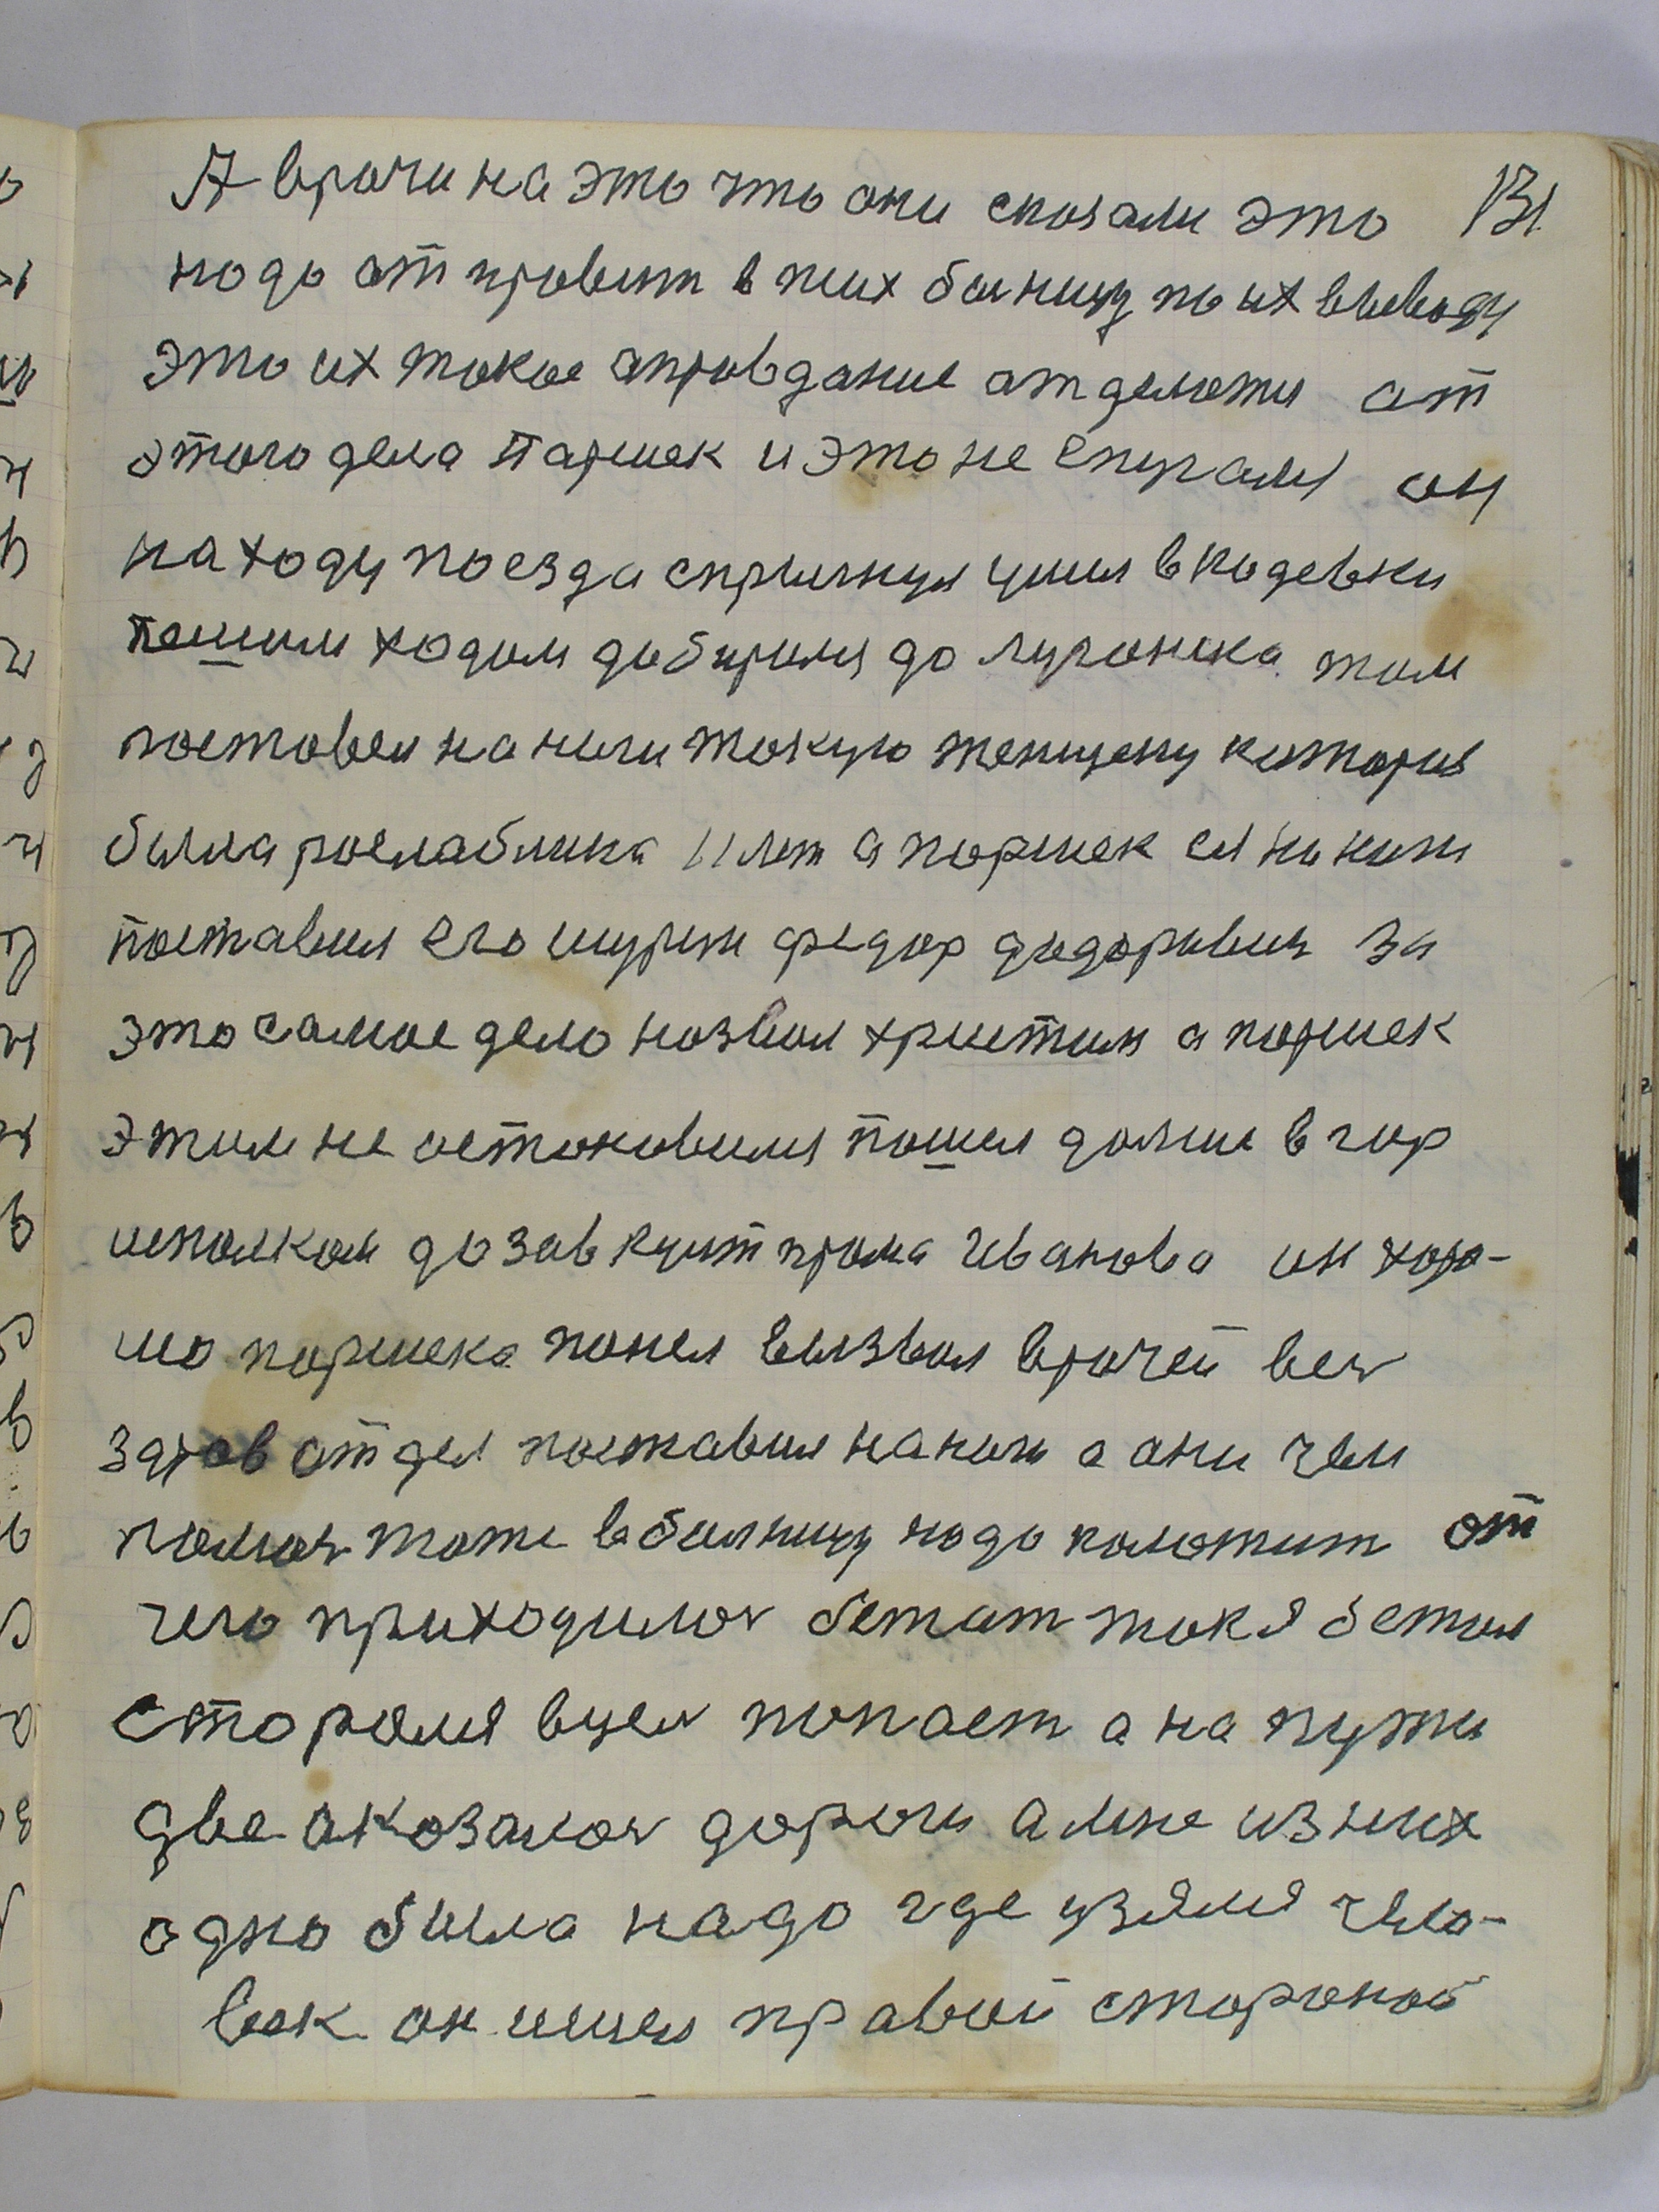 А врачи на это что они сказали это 131.
надо отправит в псих болницу по их выводу
это их такое оправдание отделатся от
этого дела Паршек и это не спугался он
на ходу поезда спрыгнул ушел в кадевки
пешим ходом добирался до луганска там
поставел на ноги такую женщену которая
была раслаблина 11 лет а паршек ея на ноги
поставил его шурин федор федорович за
это самое дело назвал христим а паршек
этим не астоновился пошел далше в гор
исполком до зав культ прома Иванова он хоро-
шо паршека понел вызвал врачей весь
здрав отдел поставил на ноги а они чем
помочь тоже в болницу надо положит от
чего приходилось бежат так я бежал
сторался вцель попаст а на пути
две аказалось дороги а мне из них
одно была надо где узялся чело-
век он ишел правой стороной